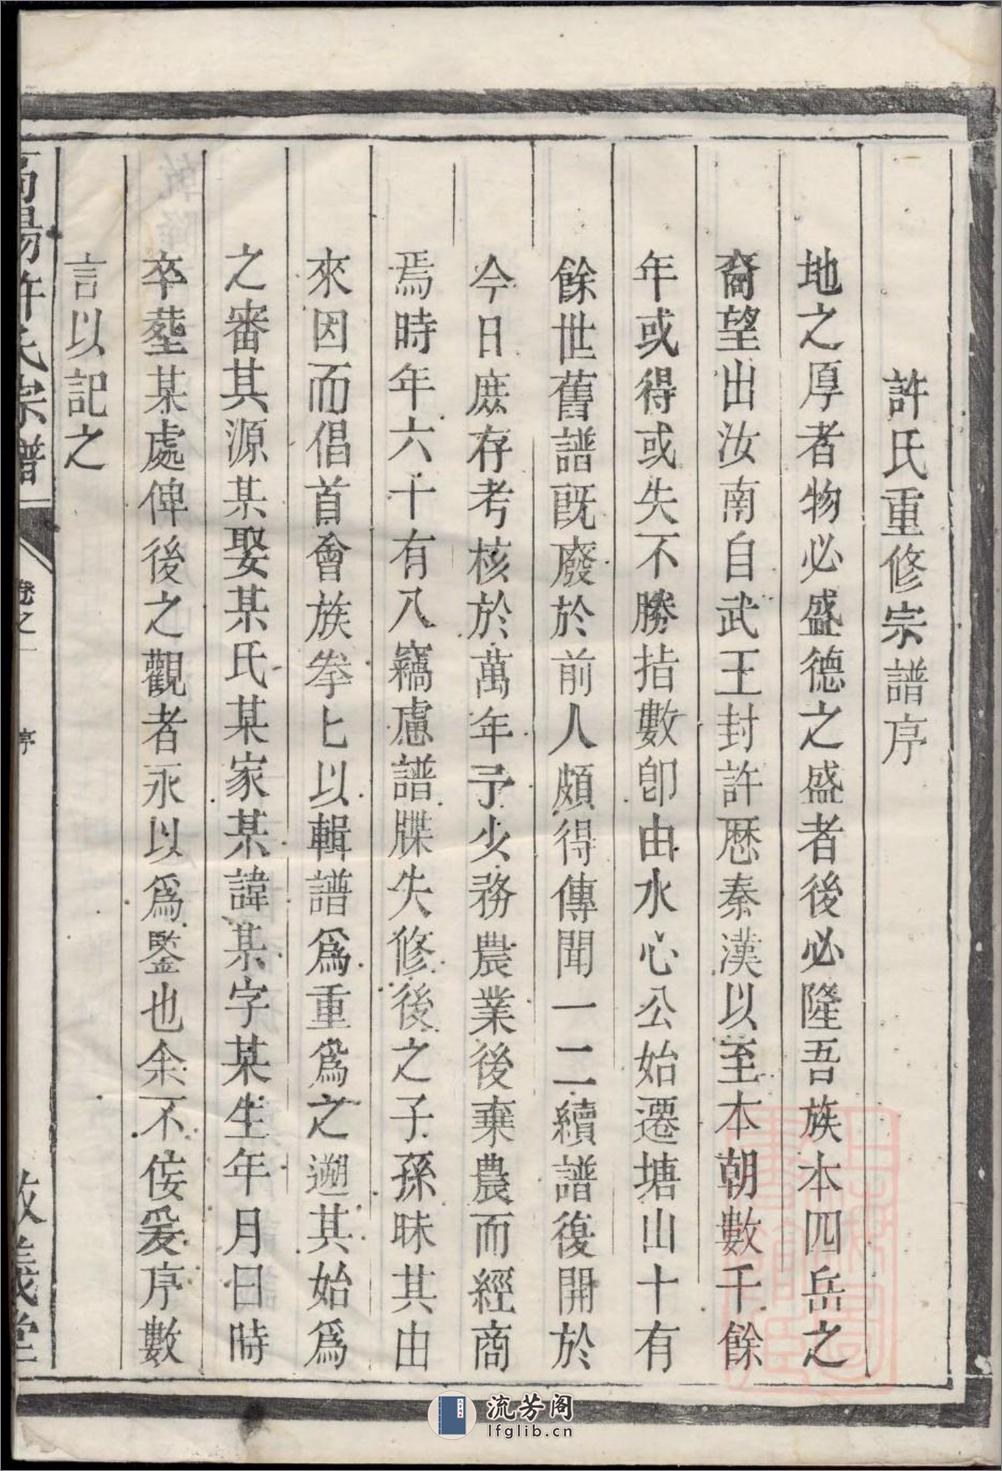 許氏重修宗譜序
地之厚者物必盛德之盛者後必隆吾族本四岳之
裔望出汝南自武王封許歷秦漢以至本朝數千餘
年或得或失不勝指數卽由水心公始遷塘山十有
餘世舊譜旣廢於前人頗得傳聞一二續譜復開於
今日庶存考核於萬年予少務農業後棄農而經商
焉時年六十有八竊慮譜牒失修後之子孫昧其由
來因而倡首會族拳匕以輯譜爲重爲之遡其始爲
之審其源某娶某氏某家某諱某字某生年月日時
卒塟某處俾後之觀者永以爲鑒也余不佞爰序數
言以記之
高陽許氏宗譜
卷之一
序
敘義堂
流芳阁
lfglib.cn